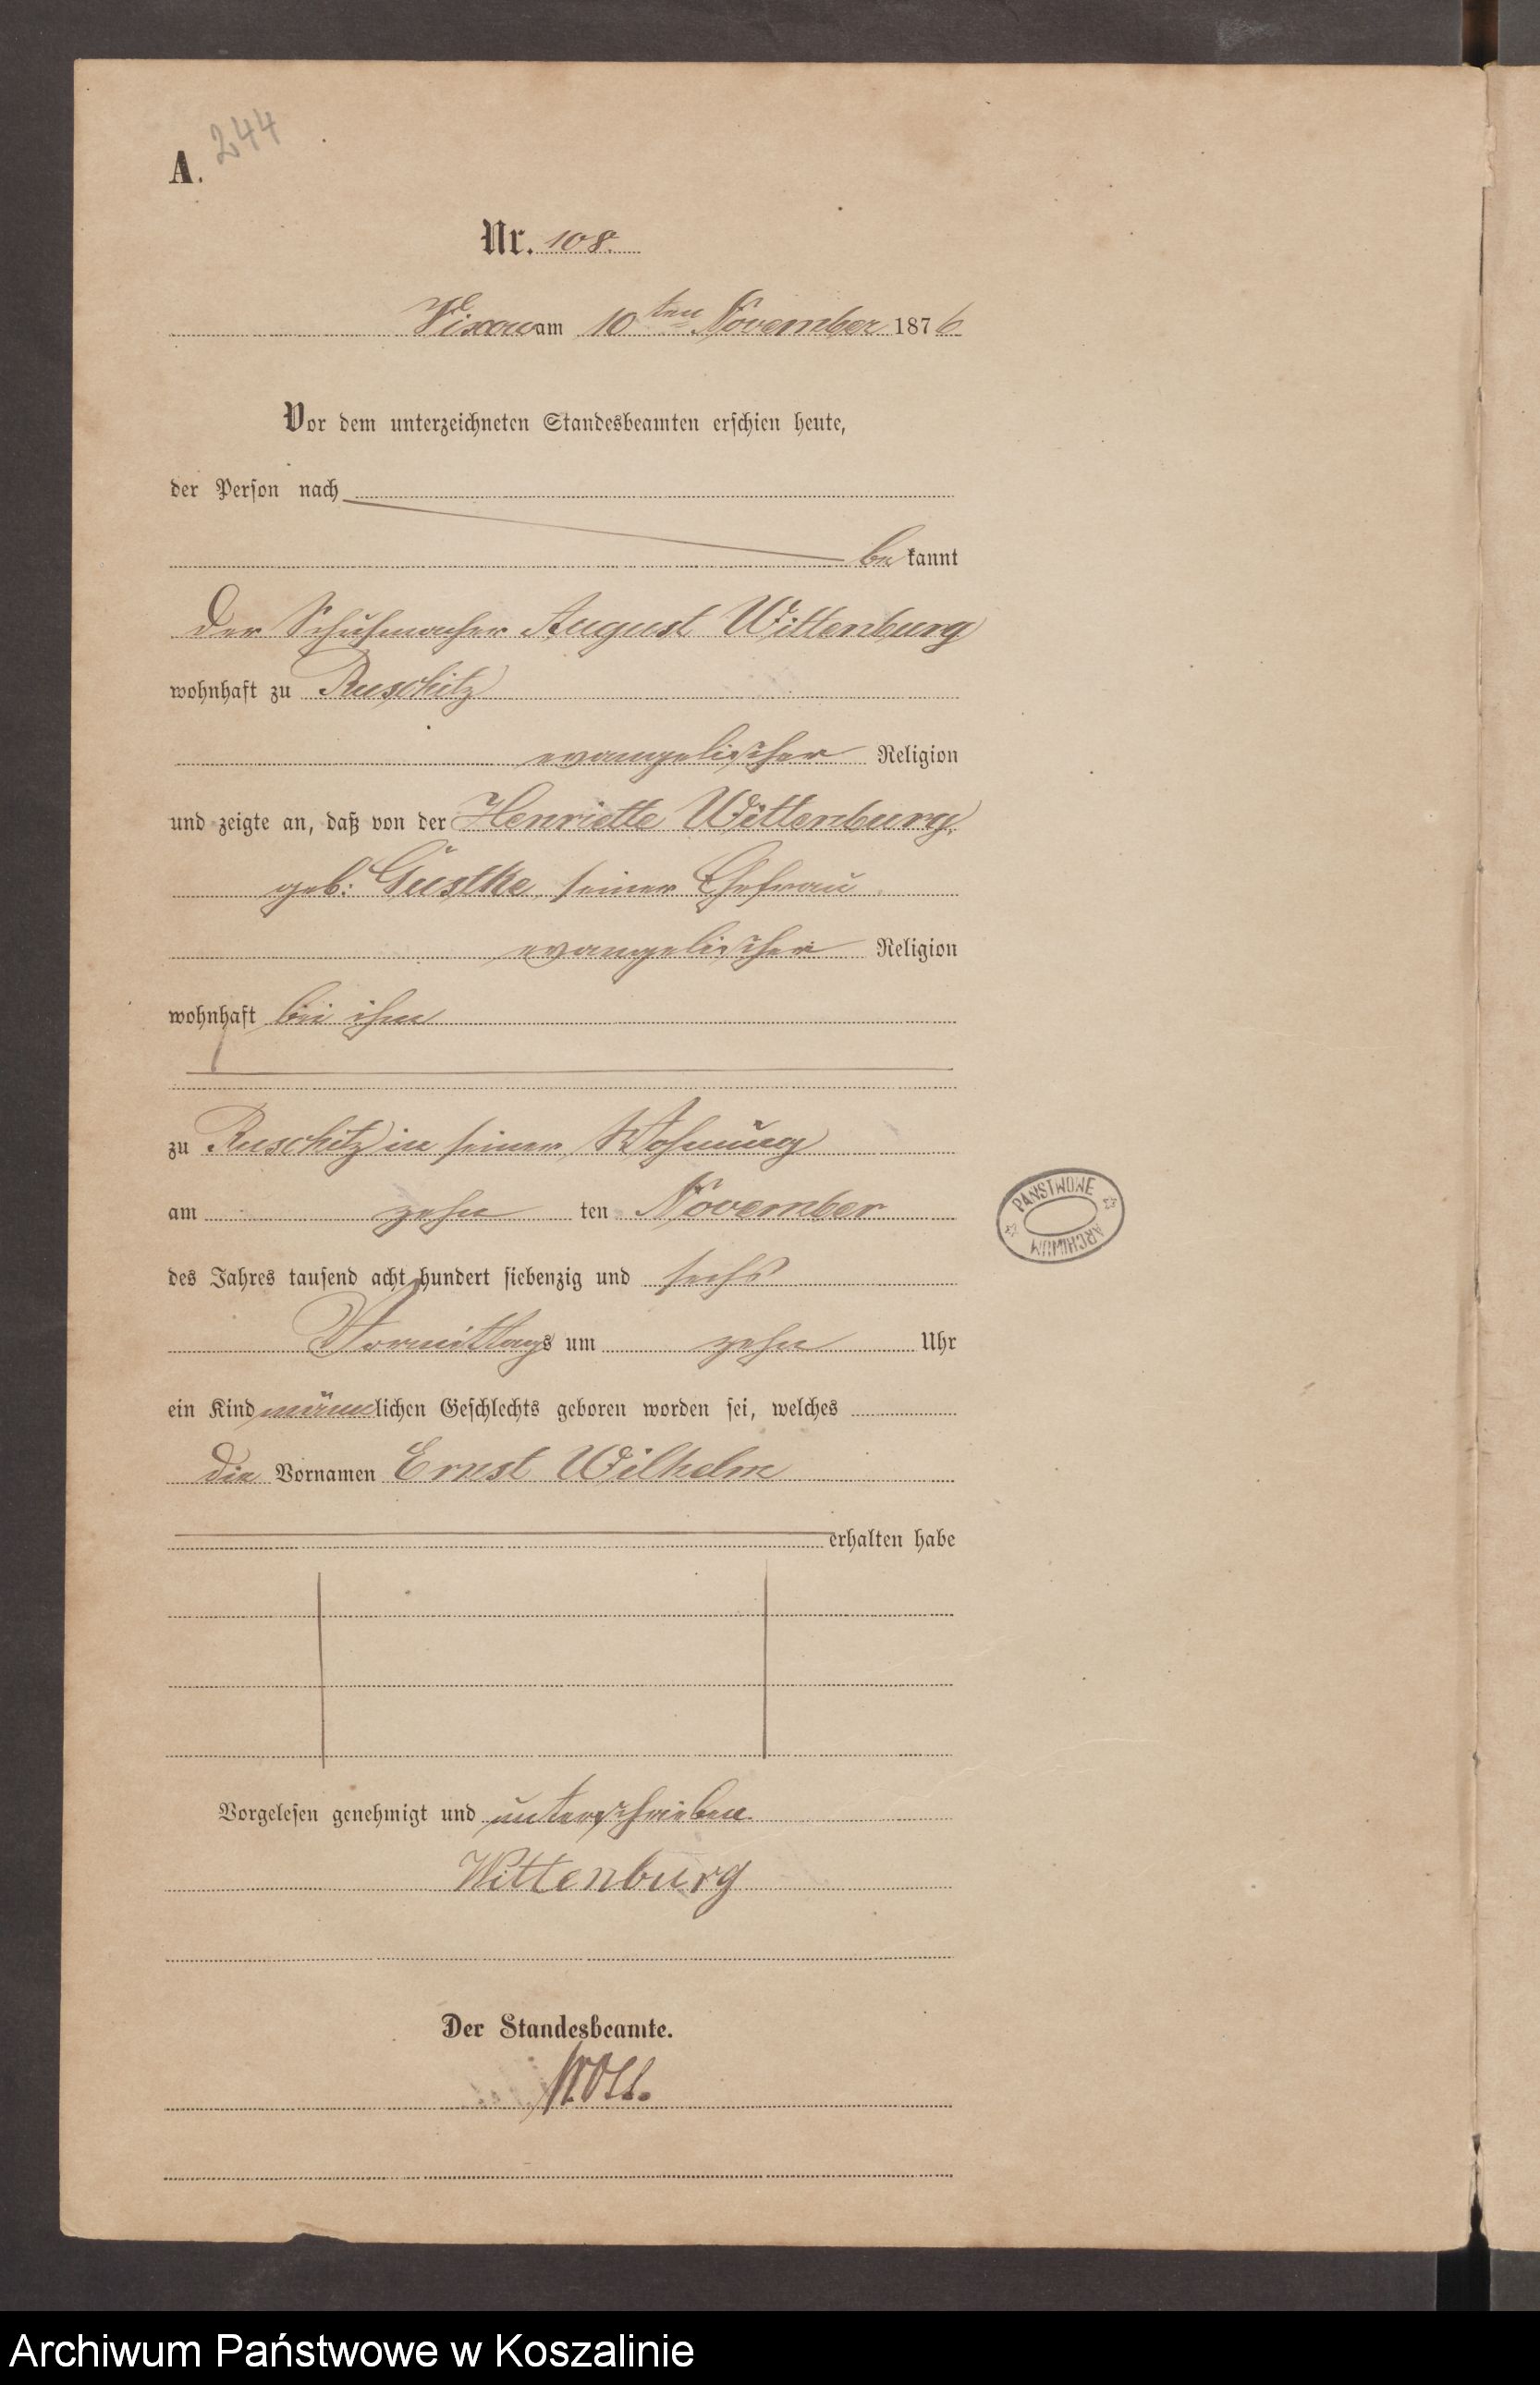 244
A.
Nr. 108.
Vixow am 10ten November 1876
Vor dem unterzeichneten Standesbeamten erschien heute,
der Person nach
bekannt
der Schuhmacher August Wittenburg
wohnhaft zu Ruschitz
evangelischer Religion
und zeigte an, daß von der Henriette Wittenburg,
geb: Güstke, seiner Ehefrau
evangelischer Religion
wohnhaft bei ihm
zu Ruschitz in seiner Wohnung
am zehn ten November
des Jahres tausend acht hundert siebenzig und sechs
Vormittags um zehn Uhr
ein Kind männlichen Geschlechts geboren worden sei, welches
die Vornamen Ernst Wilhelm
erhalten habe
PAŃSTWOWE
ARCHIWUM
Vorgelesen genehmigt und unterschrieben
Wittenburg
Der Standesbeamte.
Archiwum Państwowe w Koszalinie